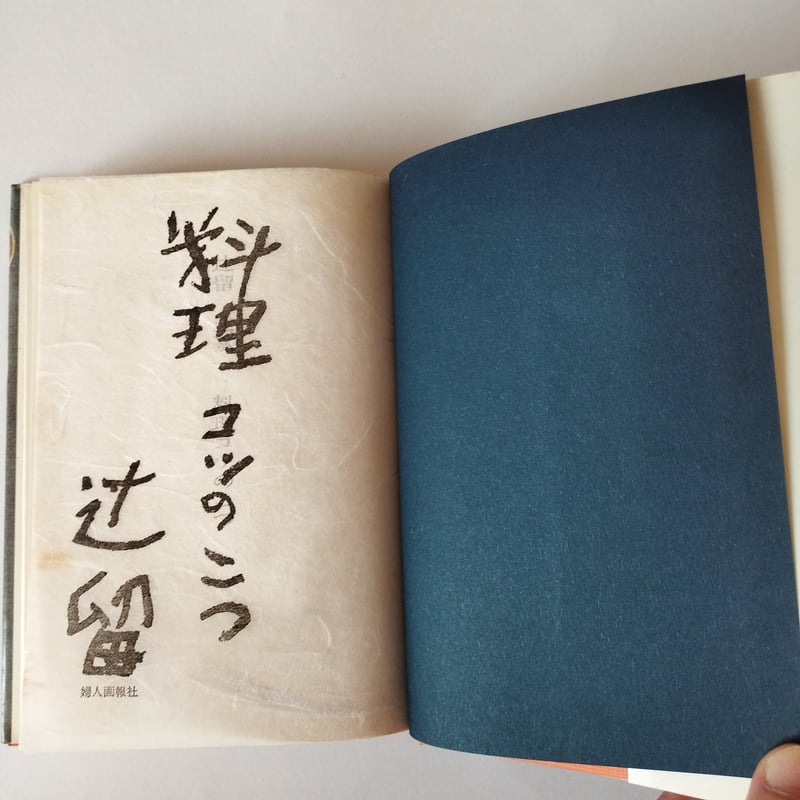 料理
コツのこつ
辻留
婦人画報社